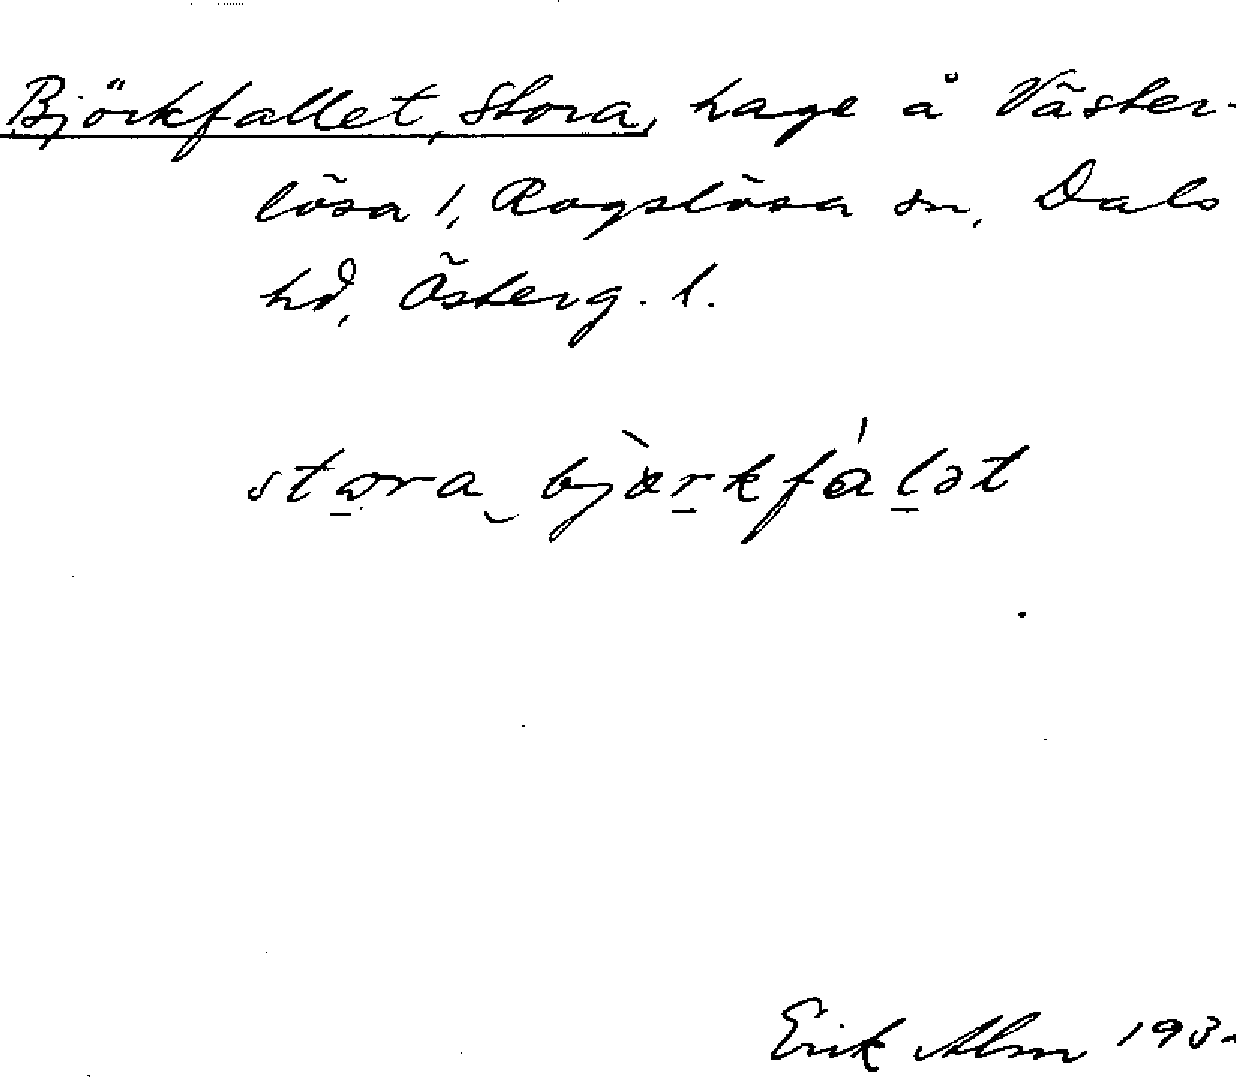 Björkfallet, Stora, hage å Väster-
lösa 1, Rogslösa sn, Dals
hd, Österg. l.
stora björkfalət
Erik Alm 193